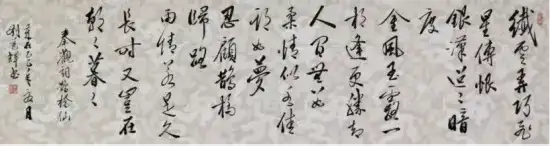 纖雲弄巧飛
星傳恨
銀漢迢々暗
度
金風玉露一
相逢更勝却
人间無數
柔情似水佳
期如夢
忍顧鵲橋
歸路
兩情若是久
長时又豈在
朝々暮々
秦觀詞鵲橋仙